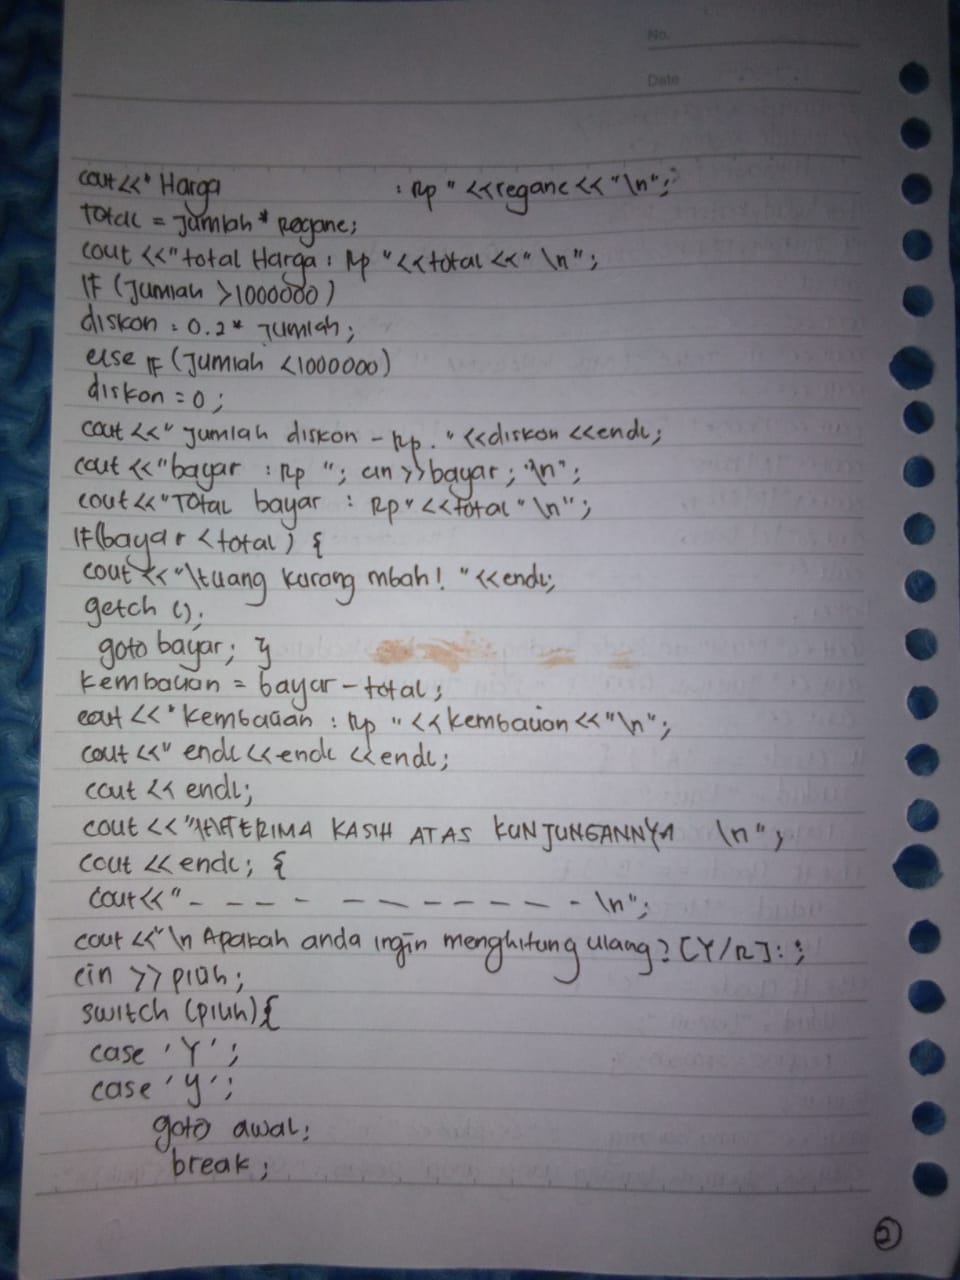 No.
Date
cout<<" Harga : Rp " <<regane<<"\n";
total = Jumlah * Regane;
cout <<"total Harga : Rp "<<total <<" \n";
If (Jumlah >1000000)
diskon : 0.2 * Jumlah;
else IF (Jumlah <1000000)
diskon = 0 ;
cout <<" Jumlah diskon - Rp . "<<diskon <<endl;
cout <<"bayar : Rp "; cin >>bayar ; "\n";
cout <<"Total bayar : Rp" <<total" \n";
If(bayar <total) {
cout <<"\tuang kurang mbah! "<<endl;
getch ();
goto bayar; }
Kembalian = bayar-total;
cout <<" Kembalian : Rp " <<kembalian <<"\n";
cout <<" endl <<endl <<endl;
cout << endl;
cout << TERIMA KASIH ATAS KUNJUNGANNYA \n";
cout <<endl; {
cout<<" - - - - - - - - - - - - \n";
cout <<"\n Apakah anda ingin menghitung ulang? [Y/R]: ;
cin >> pilih;
switch (pilih){
case 'Y' ;
case 'y' ;
goto awal;
break ;
2